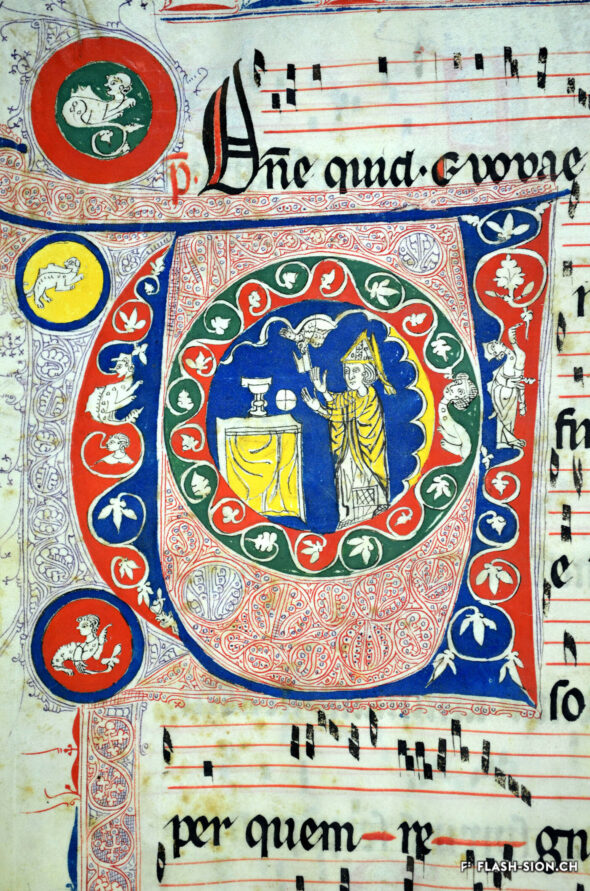 p. Dñe quid· evovae
fu
e
so
per quem re gn
FLASH-SION.CH